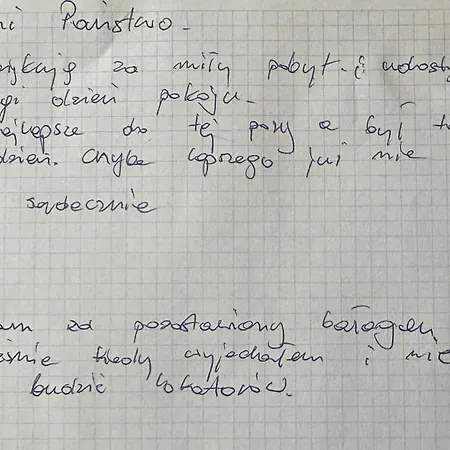 ni Państwo.
za miły pobyt. i udostę
gi dzień pokoju.
ajlepsze do tej pory a był to
dzień. Chyba lepszego już nie
serdecznie
am za pozostawiony bałagan
eśnie kiedy wyjechałem i nie
budzić lokatorów.